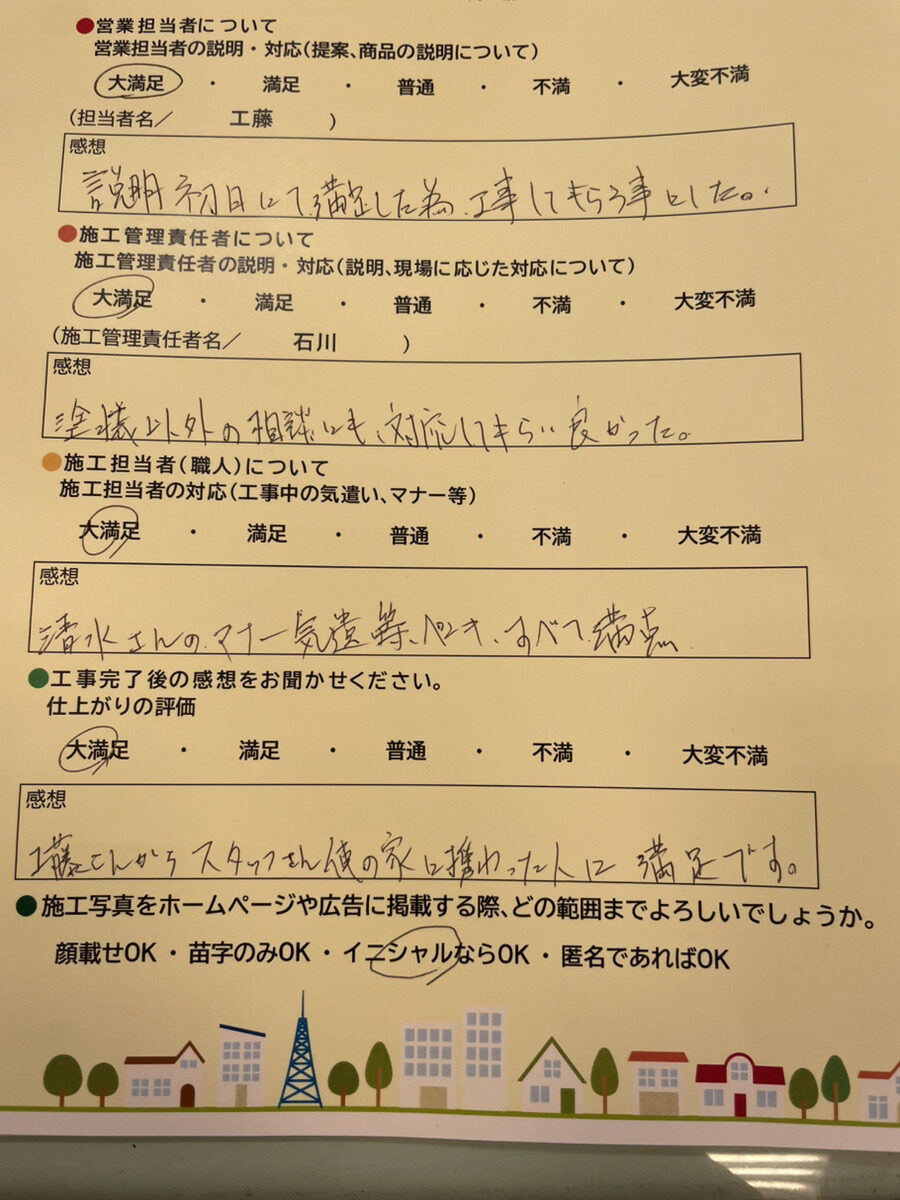 ●営業担当者について
営業担当者の説明・対応(提案、商品の説明について)
大満足 ・ 満足 ・ 普通 ・ 不満 ・ 大変不満
(担当者名／ 工藤 )
感想
説明初日にて満足した為、工事してもらう事にした。
●施工管理責任者について
施工管理責任者の説明・対応(説明、現場に応じた対応について)
大満足 ・ 満足 ・ 普通 ・ 不満 ・ 大変不満
(施工管理責任者名／ 石川 )
感想
塗装以外の相談にも、対応してもらい良かった。
●施工担当者(職人)について
施工担当者の対応(工事中の気遣い、マナー等)
大満足 ・ 満足 ・ 普通 ・ 不満 ・ 大変不満
感想
清水さんの、マナー気遣等、ペンキ、すべて満点
●工事完了後の感想をお聞かせください。
仕上がりの評価
大満足 ・ 満足 ・ 普通 ・ 不満 ・ 大変不満
感想
工藤さんからスタッフさん他の家に携わった人に満足です。
●施工写真をホームページや広告に掲載する際、どの範囲までよろしいでしょうか。
顔載せOK ・ 苗字のみOK ・ イニシャルならOK ・ 匿名であればOK